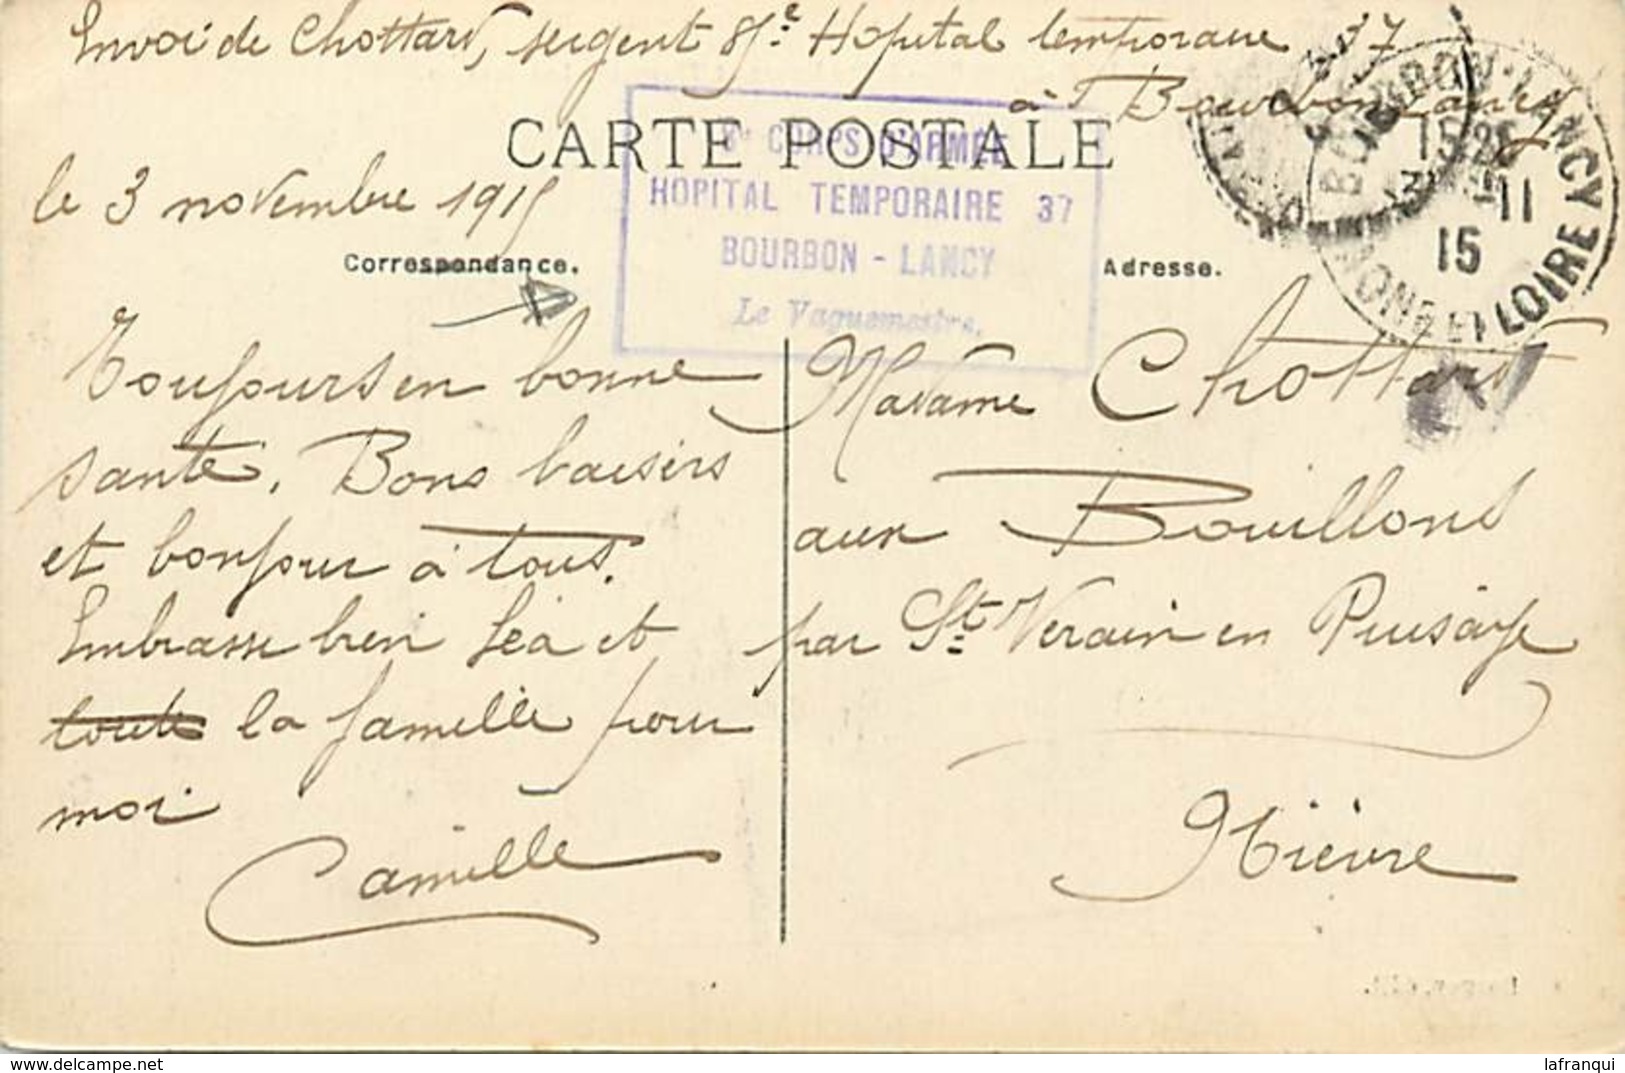 Envoi de Chottard, sergent 8e Hopital temporaire 37
à Bourbon-Lancy
CARTE POSTALE
8e CORPS D'ARMÉE
HOPITAL TEMPORAIRE 37
BOURBON - LANCY
Le Vaguemestre.
BOURBON-LANCY
15 25
3 - 11
15
SAONE ET LOIRE
le 3 novembre 1915
Correspondance.
Adresse.
Toujours en bonne
santé. Bons baisers
et bonjour à tous.
Embrasse bien Léa et
toute la famille pour
moi
Camille
Madame Chottard
aux Bouillons
par St Verain en Puisaye
Nièvre
delcampe.net
lafranqui